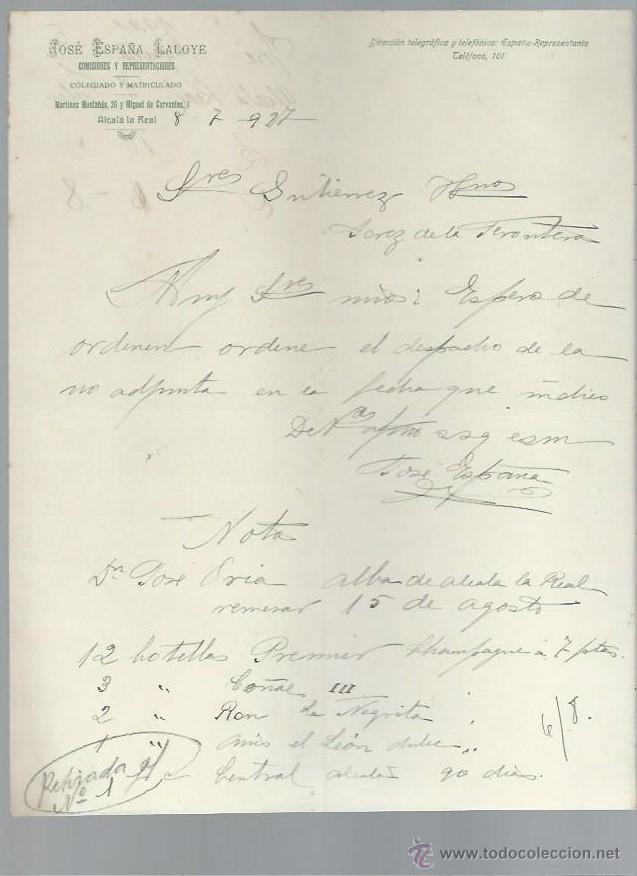 JOSÉ ESPAÑA LALOYE
COMISIONES Y REPRESENTACIONES
COLEGIADO Y MATRICULADO
Martínez Montañés, 20 y Miguel de Cervantes, 1
Alcalá la Real
Dirección telegráfica y telefónica: España-Representante
Teléfono, 101
8 7 927
Sres Gutierrez Hnos
Jerez de la Frontera
Muy Sres mios: Espero de
ordenen ordene el despacho de la
no adjunta en la fecha que indico
De Vas afmo s s q e s m
José España
Nota
Dn José Oria alba de alcala la Real
remesar 15 de agosto
12 botellas Premier Champagne á 7 ptas.
3 " Coñac III
2 " Ron La Negrita "
1 " anis el León dulce "
6/8.
Central alcalá 90 dias.
Retirada
Nº 1
www.todocoleccion.net